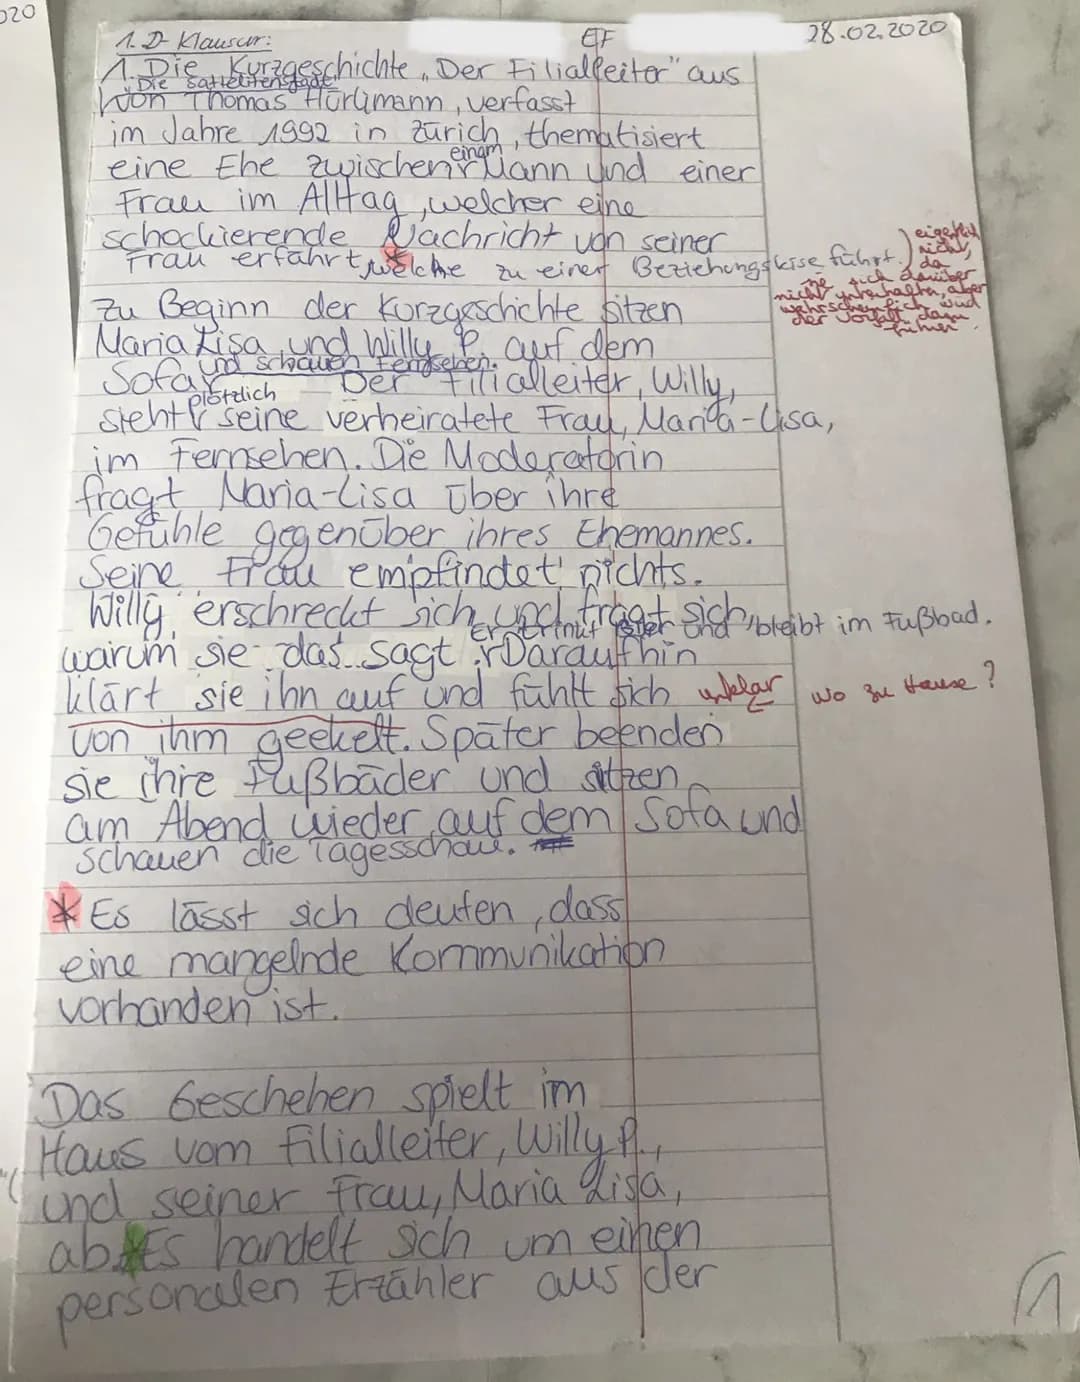 020
1. D- Klausur:
EF
28.02.2020
1. Die Kurzgeschichte „Der Filialleiter" aus
„Die Sattelitenstadt"
von Thomas Hürlimann, verfasst
im Jahre 1992 in Zürich, thematisiert
einem
eine Ehe zwischen Mann und einer
Frau im Alltag, welcher eine
schockierende Nachricht von seiner
Frau erfährt, welche zu einer Beziehungskrise führt.
eigentlich
nicht,
da
sie sich darüber
nicht unterhalten, aber
wahrscheinlich wird
der Vorfall dazu
führen
Zu Beginn der Kurzgeschichte sitzen
Maria Lisa und Willy P. auf dem
und schauen Fernsehen.
Sofa Der Filialleiter, Willy,
plötzlich
sieht seine verheiratete Frau, Maria-Lisa,
im Fernsehen. Die Moderatorin
fragt Maria-Lisa über ihre
Gefühle gegenüber ihres Ehemannes.
Seine Frau empfindet nichts.
Willy erschreckt sich und fragt sich,
Er trinkt Bier und bleibt im Fußbad.
warum sie das sagt. Daraufhin
klärt sie ihn auf und fühlt sich
unklar wo zu Hause?
von ihm geekelt. Später beenden
sie ihre Fußbäder und sitzen
am Abend wieder auf dem Sofa und
schauen die Tagesschau.
* Es lässt sich deuten, dass
eine mangelnde Kommunikation
vorhanden ist.
Das Geschehen spielt im
Haus vom Filialleiter, Willy P.,
und seiner Frau, Maria Lisa,
ab.* Es handelt sich um einen
personalen Erzähler aus der
1